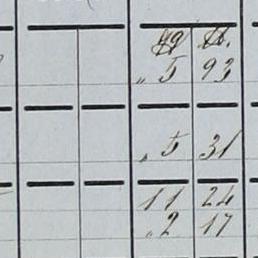 „ 5 93
„ 5 31
11 24
„ 2 17